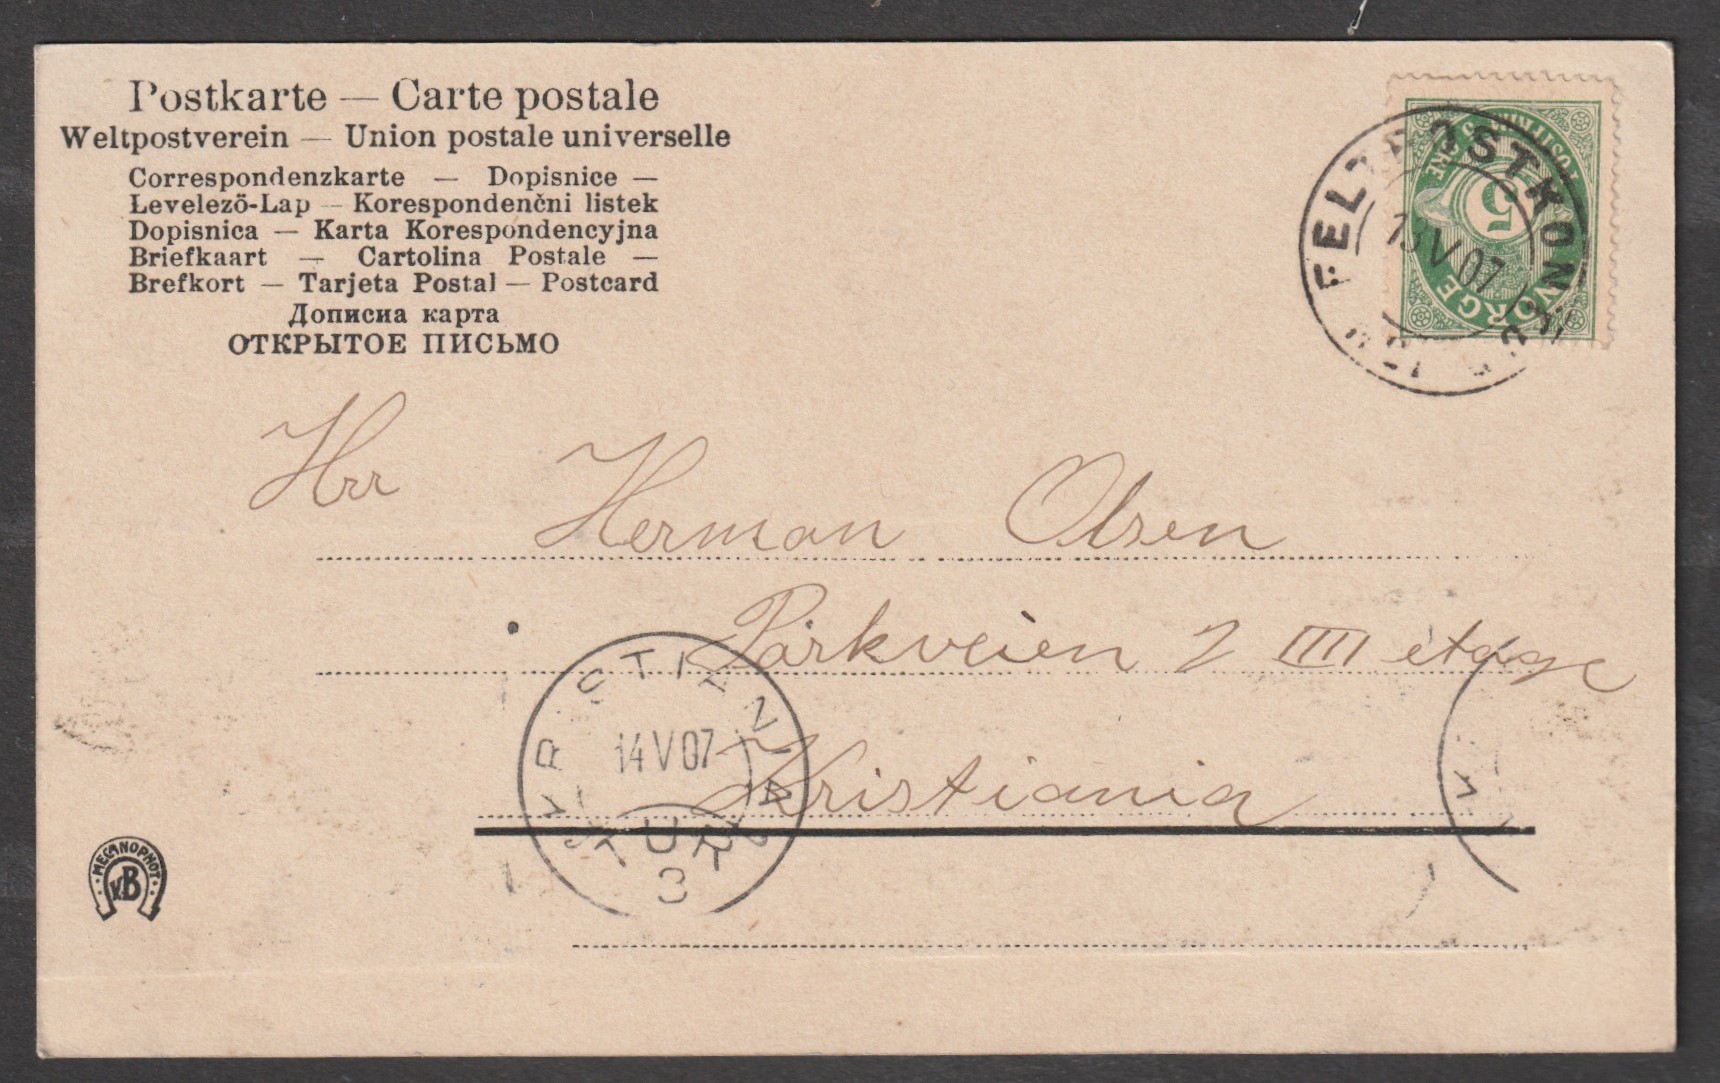 Postkarte — Carte postale
Weltpostverein — Union postale universelle
Correspondenzkarte — Dopisnice —
Levelezö-Lap — Korespondenčni listek
Dopisnica — Karta Korespondencyjna
Briefkaart — Cartolina Postale —
Brefkort — Tarjeta Postal — Postcard
Дописна карта
ОТКРЫТОЕ ПИСЬМО
FELTPOSTKONTOR
13 V 07
5
NORGE
Hrr
Herman Olsen
Parkveien 2 IIII etage
Kristiania
14 V 07
TUR
3
MECANOPHOT
VB